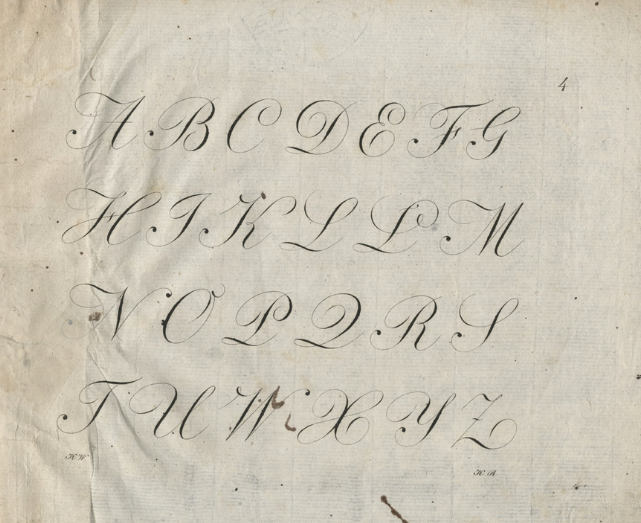 4
A B C D E F G
H I K L L M
N O P Q R S
T U W X Y Z